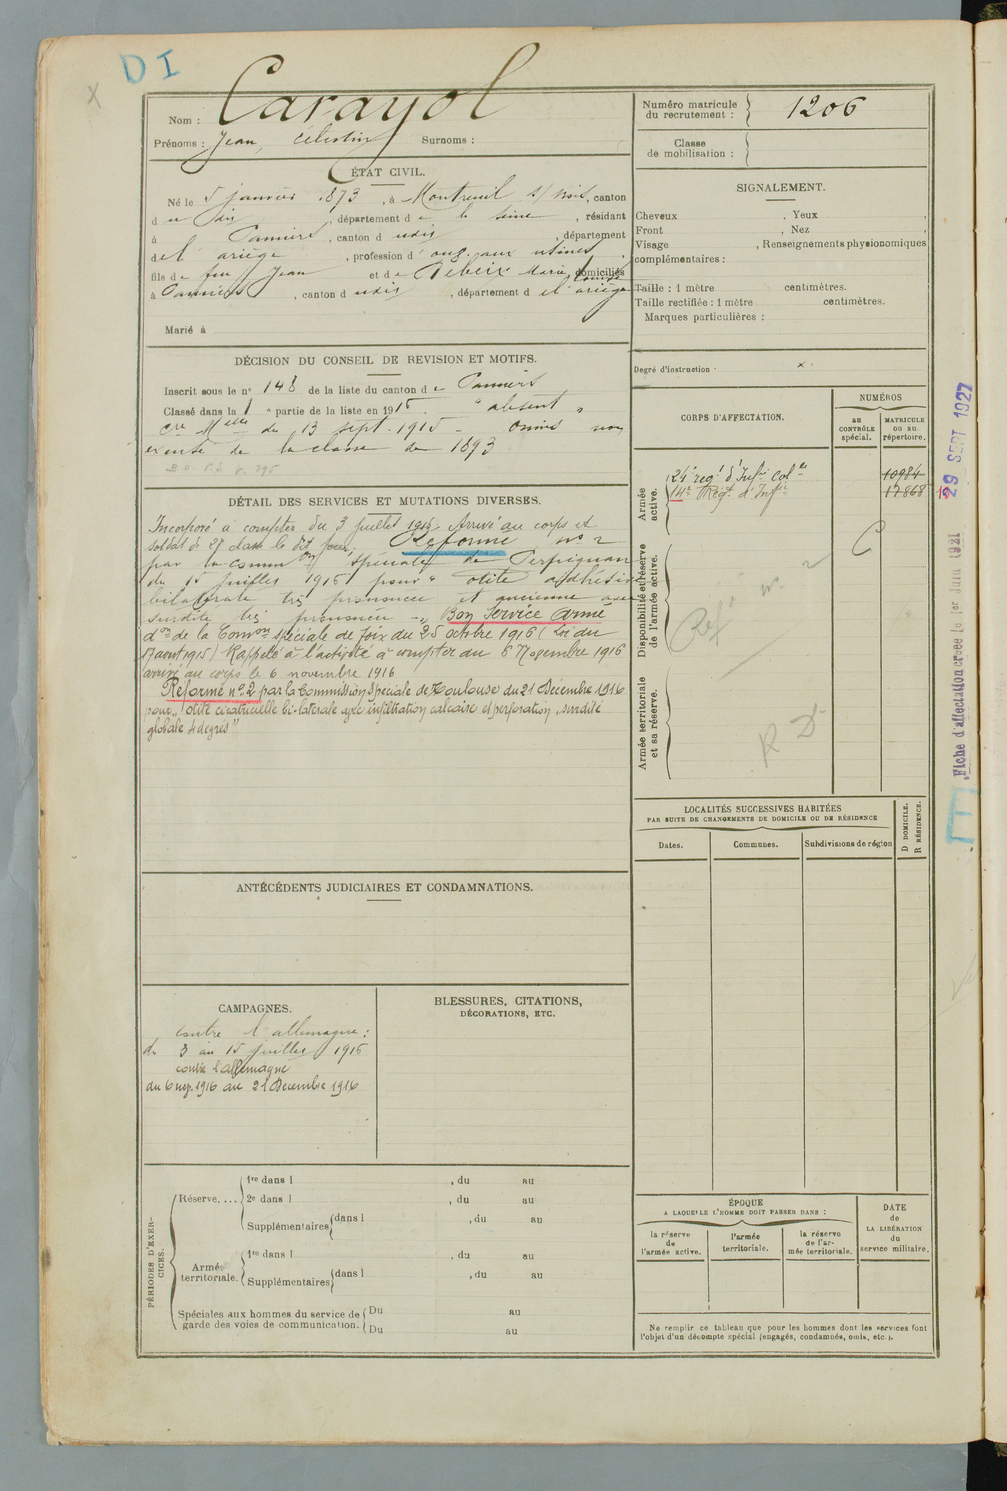 D I
Nom : Carayol
Prénoms : Jean, Célestin Surnoms :
Numéro matricule
du recrutement : 1206
Classe
de mobilisation :
ÉTAT CIVIL.
Né le 5 janvier 1873, à Montreuil s/ bois, canton
d u dit, département d e la Seine, résidant
à Pamiers, canton d udit, département
de l'ariège, profession d'
fils de feu Jean et de Marie Louise domiciliés
à Pamiers, canton d udit, département d el'ariège
Marié à
SIGNALEMENT.
Cheveux , Yeux ,
Front , Nez
Visage , Renseignements physionomiques
complémentaires :
Taille : 1 mètre centimètres.
Taille rectifiée : 1 mètre centimètres.
Marques particulières :
Degré d'instruction . x .
DÉCISION DU CONSEIL DE REVISION ET MOTIFS.
Inscrit sous le n° 148 de la liste du canton d e Pamiers
Classé dans la 1 e partie de la liste en 1915. "absent"
Cre Melle du 13 sept. 1915 - omis non
excusé de la classe de 1893
DÉTAIL DES SERVICES ET MUTATIONS DIVERSES.
Incorporé à compter du 3 juillet 1916. Arrivé au corps et
soldat de 2e classe le dit jour. Réformé n° 2
par la Common Spéciale de Perpignan
du 15 juillet 1916 pour " otite adhésive
bilatérale très prononcée et ancienne avec
surdité très prononcée -" Bon Service armé
don de la Comon spéciale de Foix du 25 octobre 1916 (Loi du
17 aout 1915) Rappelé à l'activité à compter du 6 Novembre 1916
arrivé au corps le 6 novembre 1916
Réformé n° 2 par la Commission Spéciale de Toulouse du 21 Décembre 1916
pour " otite cicatricielle bi-latérale avec infiltration calcaire et perforation, surdité
globale 4 degrés"
CORPS D'AFFECTATION.
NUMÉROS
au
CONTRÔLE
spécial.
MATRICULE
ou au
répertoire.
Armée
active.
24e regt d'Infie Colle 10984
14e Régt d'Infie 17868
Disponibilité et réserve
de l'armée active.
Réf n° 2
Armée territoriale
et sa réserve.
R D
29 SEPT 1927
Fiche d'affectation créée le 1er Juin 1921
LOCALITÉS SUCCESSIVES HABITÉES
PAR SUITE DE CHANGEMENTS DE DOMICILE OU DE RÉSIDENCE
Dates. Communes. Subdivisions de région
D DOMICILE.
R RÉSIDENCE.
ANTÉCÉDENTS JUDICIAIRES ET CONDAMNATIONS.
CAMPAGNES.
contre l'allemagne :
du 3 au 15 juillet 1916
contre l'allemagne
du 6 nov. 1916 au 21 Décembre 1916
BLESSURES, CITATIONS,
DÉCORATIONS, ETC.
PÉRIODES D'EXER-
CICES.
Réserve....
1re dans l , du au
2e dans l , du au
Supplémentaires dans l , du au
Armée
territoriale.
1re dans l , du au
Supplémentaires dans l , du au
Spéciales aux hommes du service de
garde des voies de communication.
Du au
Du au
ÉPOQUE
A LAQUELLE L'HOMME DOIT PASSER DANS :
la réserve
de
l'armée active.
l'armée
territoriale.
la réserve
de l'ar-
mée territoriale.
DATE
de
LA LIBÉRATION
du
service militaire.
Ne remplir ce tableau que pour les hommes dont les services font
l'objet d'un décompte spécial (engagés, condamnés, omis, etc.).